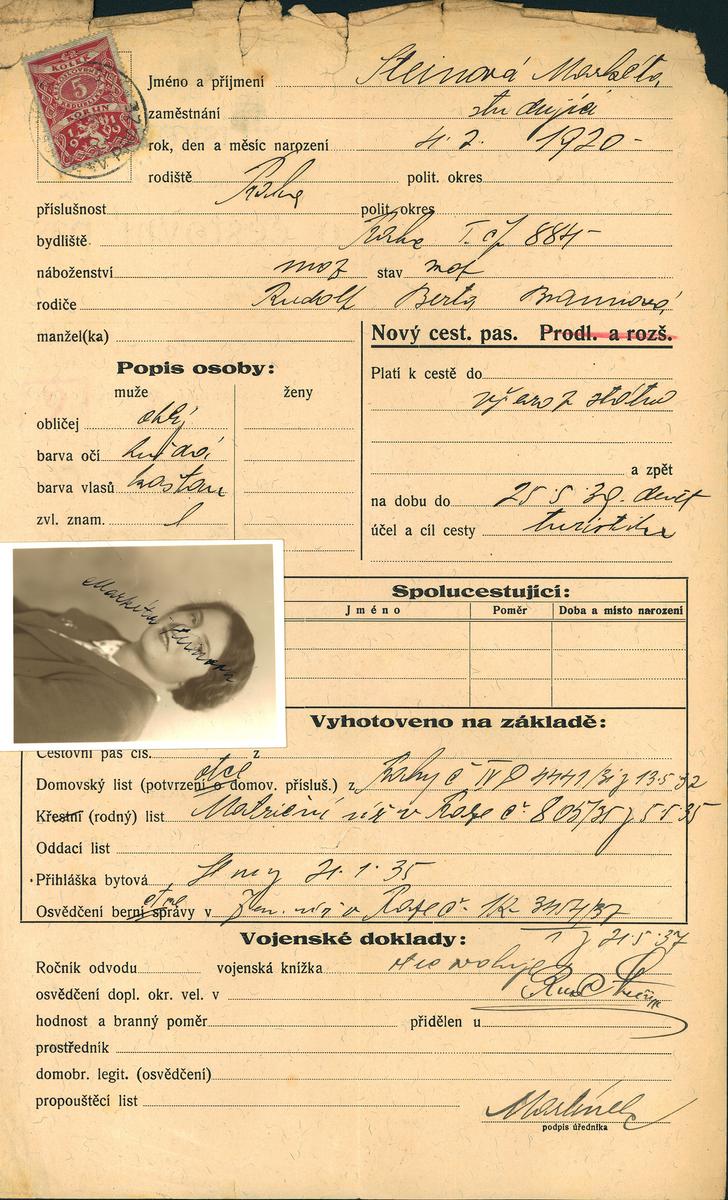 KOLEK
5
KORUN
1919
Jméno a příjmení Steinová Markéta
zaměstnání studující
rok, den a měsíc narození 4. 2. 1920 -
rodiště Praha polit. okres
příslušnost polit. okres
bydliště Praha I. čj 884 -
náboženství moj stav
rodiče Rudolf Berta Braunová
manžel(ka)
Nový cest. pas. Prodl. a rozš.
Popis osoby:
muže ženy
obličej oblý
barva očí hnědá
barva vlasů kaštan
zvl. znam.
Platí k cestě do
všech států
a zpět
na dobu do 25. 5. 39.
účel a cíl cesty turistika
Markéta Steinová
Spolucestující:
Jméno Poměr Doba a místo narození
Vyhotoveno na základě:
Cestovní pas čís. z
otce
Domovský list (potvrzení o domov. přísluš.) z Prahy č IV D 4441/31 z 13.5.32
Křestní (rodný) list Matriční úř v Praze č. 805/35 z 5.5.35
Oddací list
Přihláška bytová 21. 1. 35
otce
Osvědčení berní správy v Praze č. 347/37
z 21. 5. 37
Vojenské doklady:
Ročník odvodu vojenská knížka
osvědčení dopl. okr. vel. v
hodnost a branný poměr přidělen u
prostředník
domobr. legit. (osvědčení)
propouštěcí list
podpis úředníka